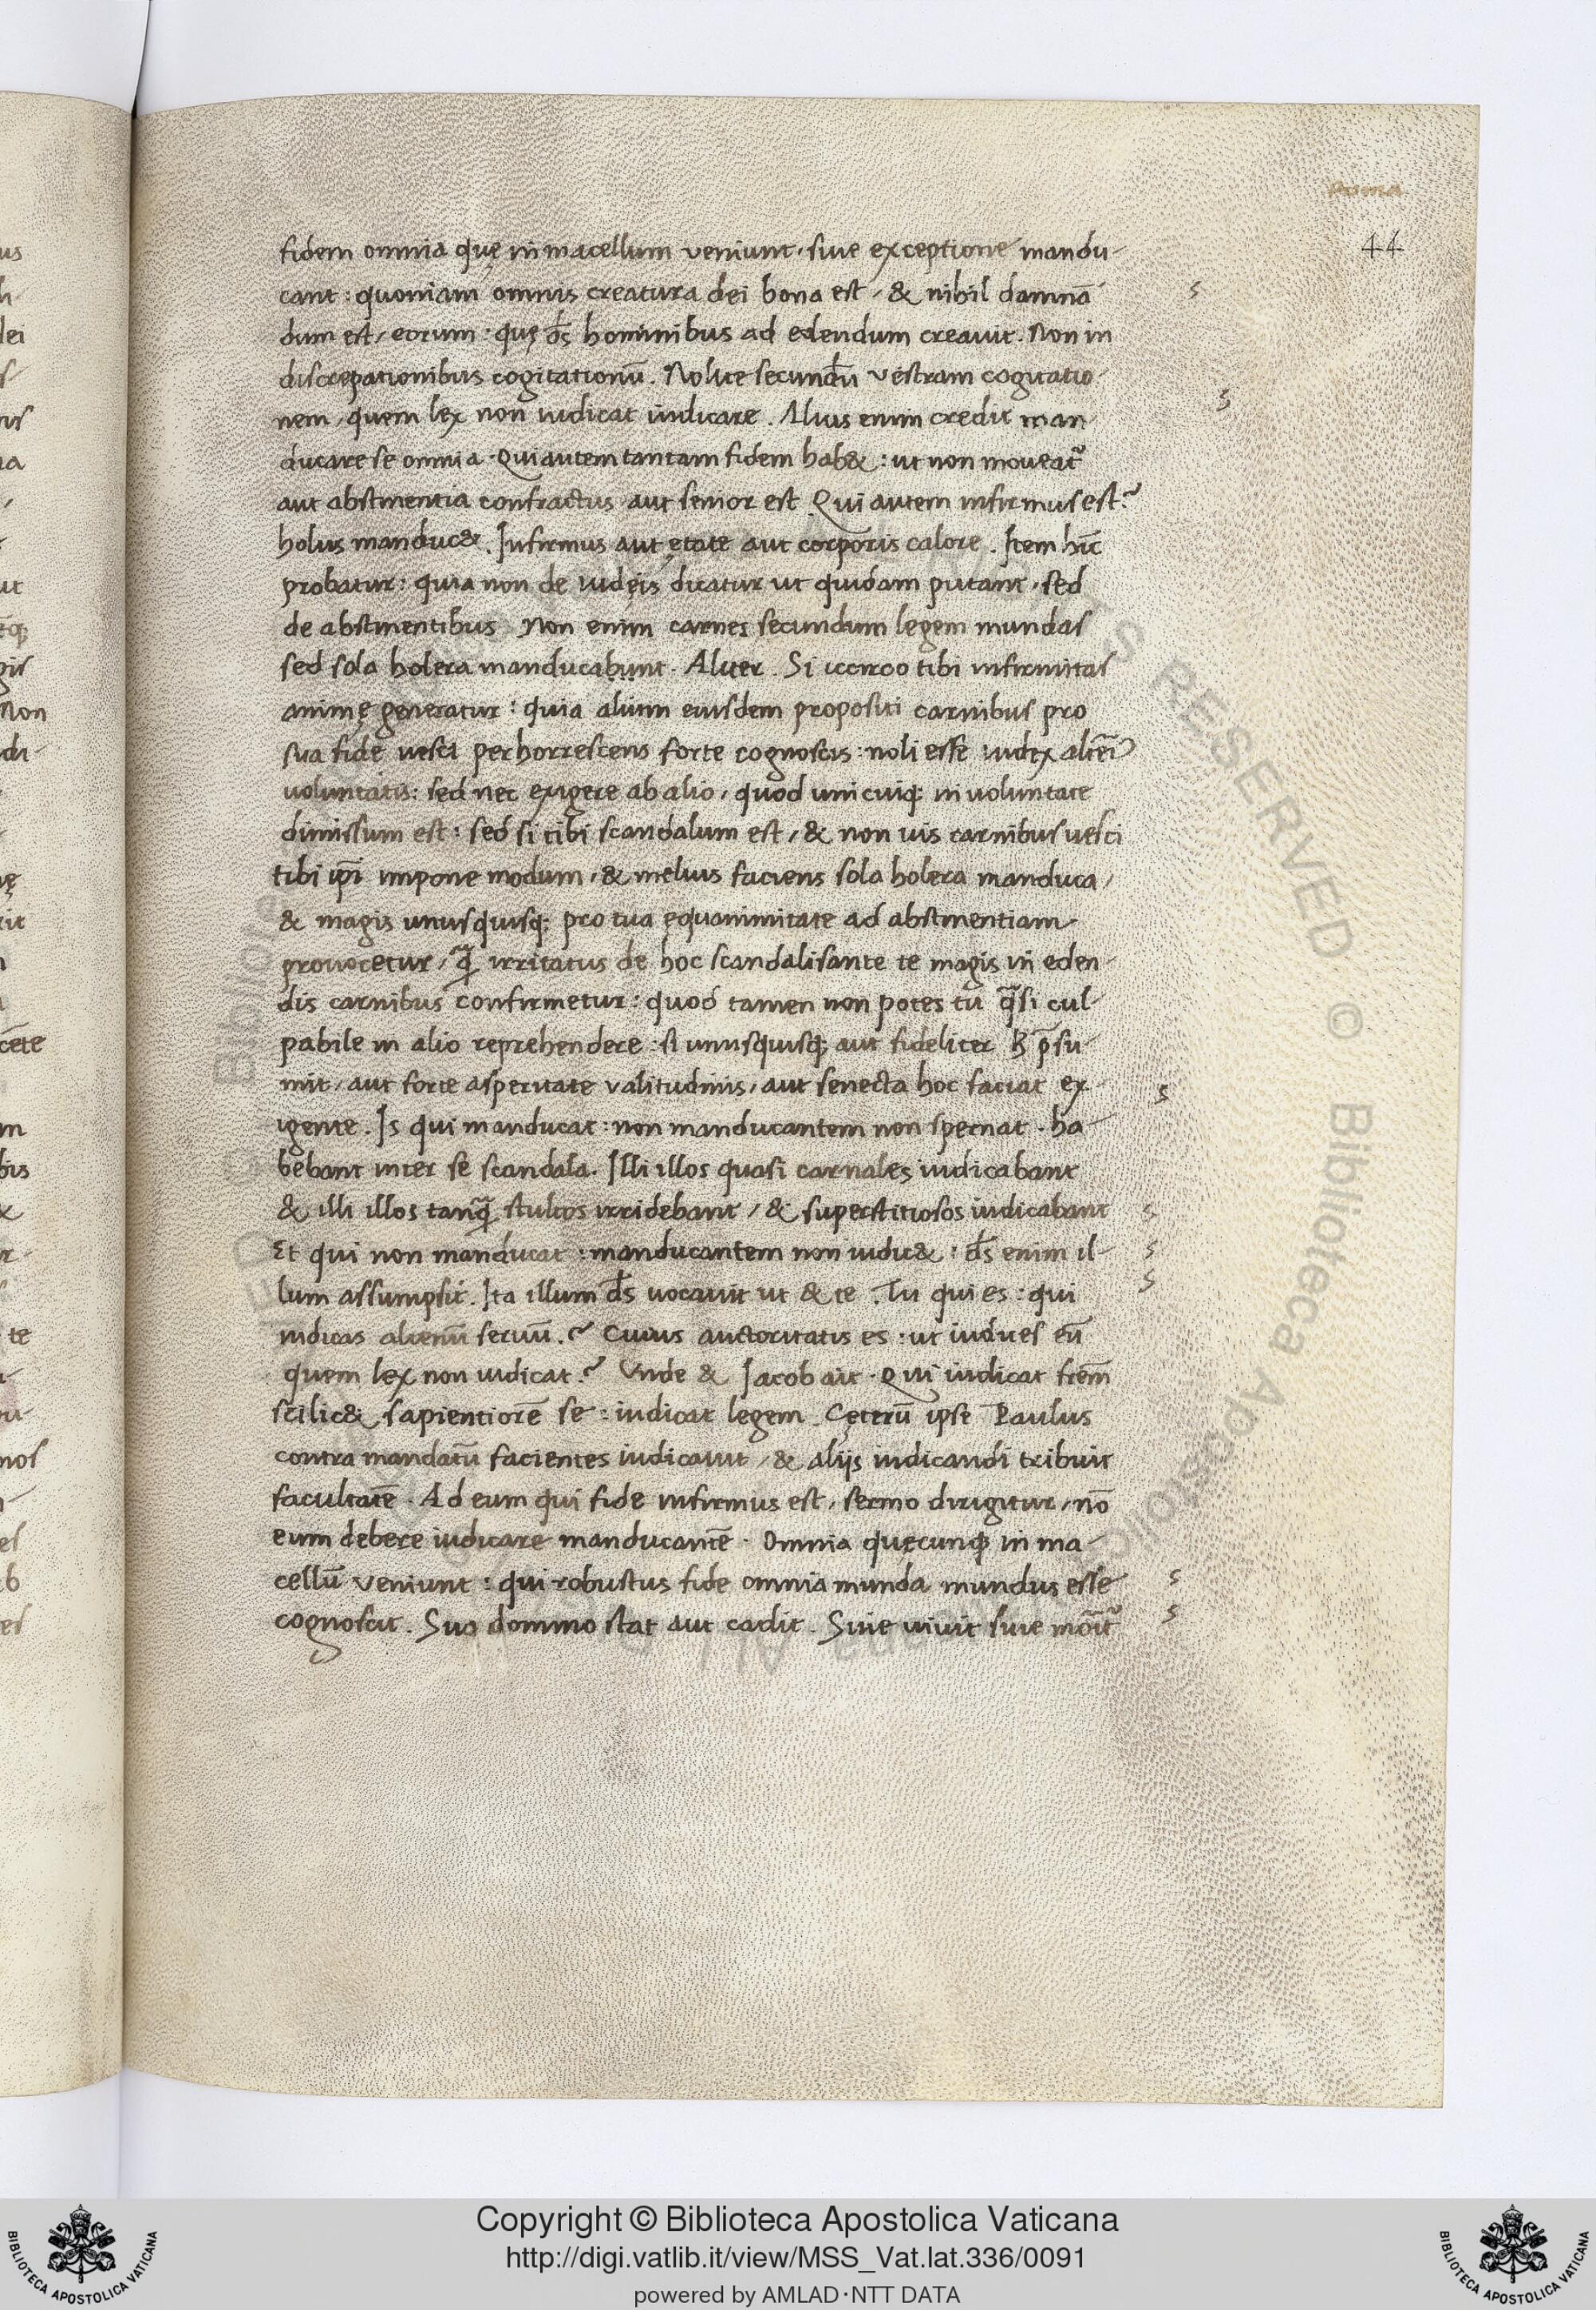 Roma
44
fidem omnia quę in macellum veniunt, siue exceptione mandu-
cant: quoniam omnis creatura dei bona est, & nihil damnā
dum est, eorum: quę d̄s hominibus ad edendum creauit. Non in
discrepationibus cogitationū. Nolite secundū vestram cogitatio
nem, quem lex non iudicat iudicare. Alius enim credit man-
ducare se omnia. Qui autem tantam fidem hab&: ut non moueat᷑
aut abstinentia confractus aut senior est Qui autem infirmus est?
holus manduc&. Infirmus aut ętate aut corporis calore. Item hīc
probatur: quia non de iudęis dicatur ut quidam putant, sed
de abstinentibus Non enim carnes secundum legem mundas
sed sola holera manducabunt. Aliter. Si iccirco tibi infirmitas
animę generatur: quia alium eiusdem propositi carnibus pro
sua fide uesci perhorrescens forte cognoscis: noli esse iudex aliēi
voluntatis: sed nec exigere ab alio, quod unicuiq; in voluntate
dimissum est: sed si tibi scandalum est, & non uis carnibus uesci
tibi ip̄i impone modum, & melius faciens sola holera manduca,
& magis unusquisq; pro tua ęquanimitate ad abstinentiam
prouocetur, q̄ irritatus de hoc scandalisante te magis in eden-
dis carnibus confirmetur: quod tamen non potes tu q̄si cul-
pabile in alio reprehendere: si unusquisq; aut fideliter p̄su-
mit, aut forte asperitate valitudinis, aut senecta hoc faciat ex-
igente. Is qui manducat: non manducantem non spernat. ha-
bebant inter se scandala. Illi illos quasi carnales iudicabant
& illi illos tanq̄ stultos irridebant, & superstitiosos iudicabant
Et qui non manducat: manducantem non iudic&: d̄s enim il-
lum assumpsit. Ita illum d̄s uocauit ut & te. Tu qui es: qui
iudicas alienū seruū.? Cuius auctoritatis es: ut iudices eū
quem lex non iudicat? Vnde & Iacob ait. Qui iudicat frēm
scilic& sapientiorē se: iudicat legem. Cęterū ipse Paulus
contra mandatū facientes iudicauit, & alijs iudicandi tribuit
facultatē. Ad eum qui fide infirmus est, sermo dirigitur, nō
eum debere iudicare manducantē. Omnia quęcunq; in ma-
cellū veniunt: qui robustus fide omnia munda mundus esse
cognoscit. Suo domino stat aut cadit. Siue uiuit siue morit᷑
Copyright © Biblioteca Apostolica Vaticana
http://digi.vatlib.it/view/MSS_Vat.lat.336/0091
powered by AMLAD·NTT DATA